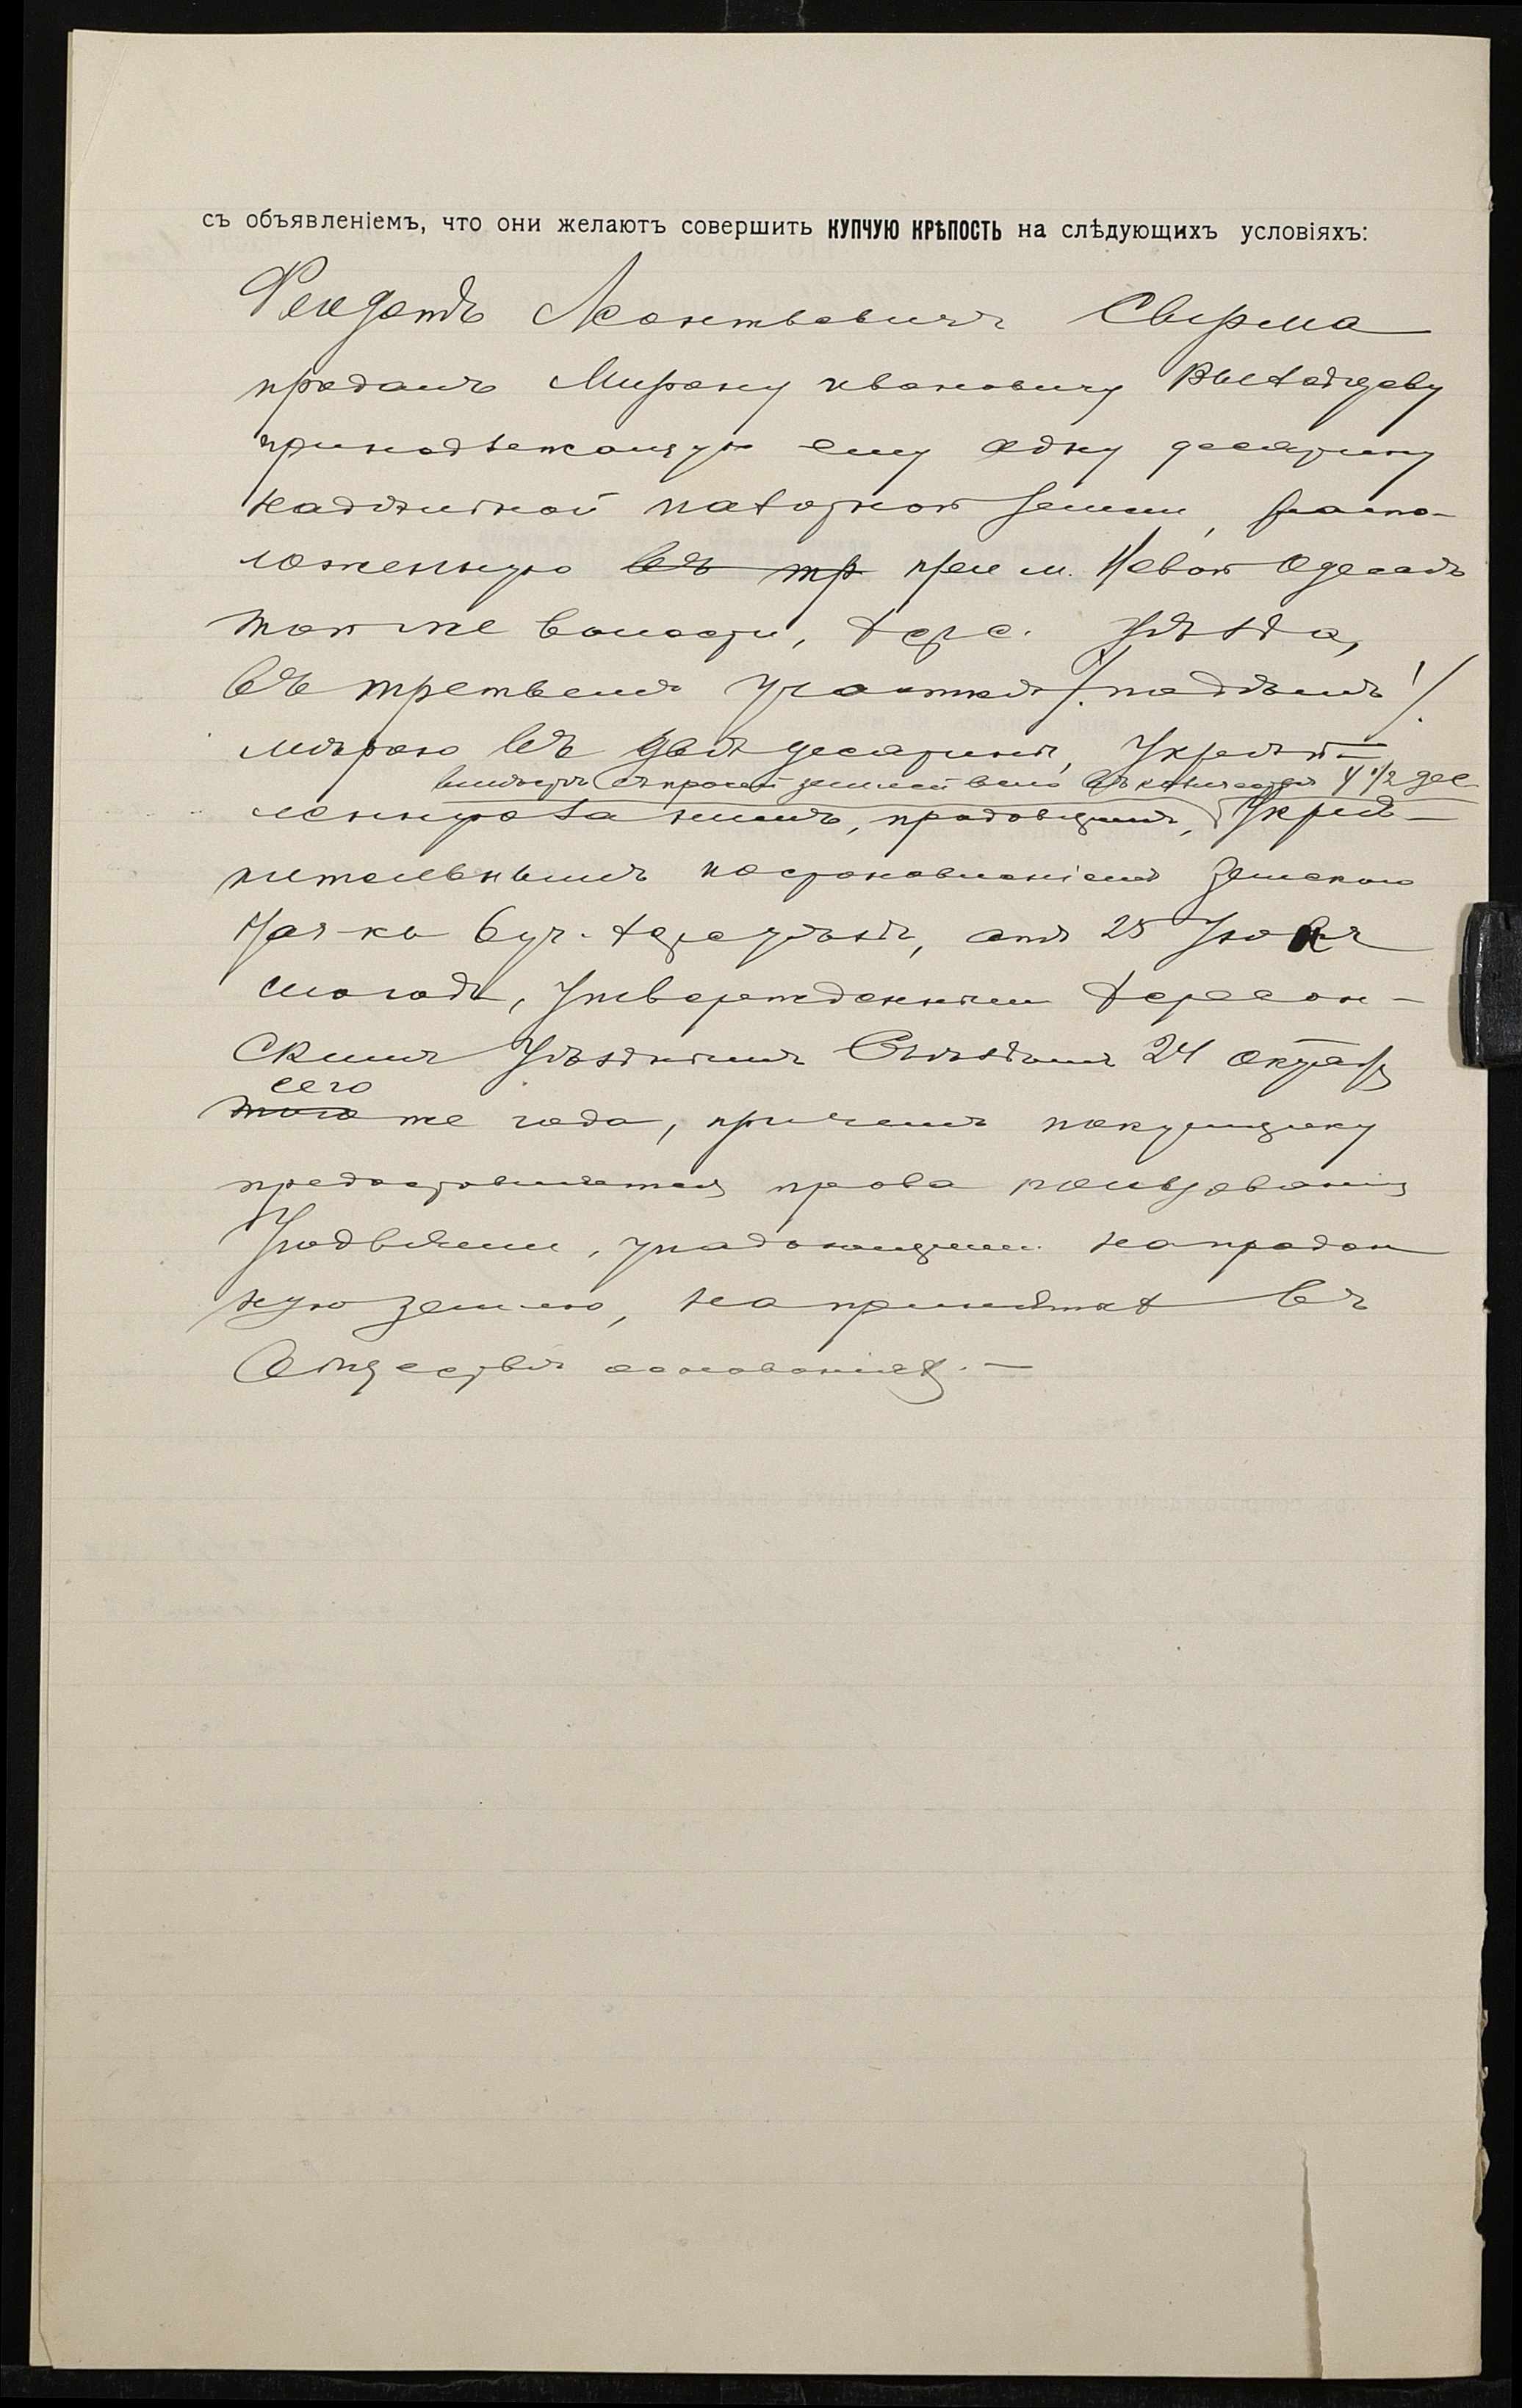 съ объявленіемъ, что они желаютъ совершить КУПЧУЮ КРѢПОСТЬ на слѣдующихъ условіяхъ:
Леонтьевичъ Свирма
продалъ Мирону Ивановичу
принадлежащую ему одну десятину
надѣльной пахотной земли, распо-
ложенную въ тр при м. Новой Одессѣ
той же волости, Херс. уѣзда,
въ третьемъ участкѣ
мѣрою въ двѣ десятины, укрѣп-
вмѣстѣ съ прочей землей всего въ количествѣ 4 1/2 дес
ленную за нимъ, продавцемъ, укрѣ-
пительнымъ постановленіемъ Земскаго
Нач-ка 6 уч. Херс уѣзда, отъ 25 Іюля
сего года, утвержденнымъ Херсон-
скимъ Уѣзднымъ Съѣздомъ 24 Октября
сего
того же года, причемъ покупщику
предоставляется право пользованія
угодьями, упадающими на продан
ную землю, на принятыхъ въ
Обществѣ основаніяхъ. —